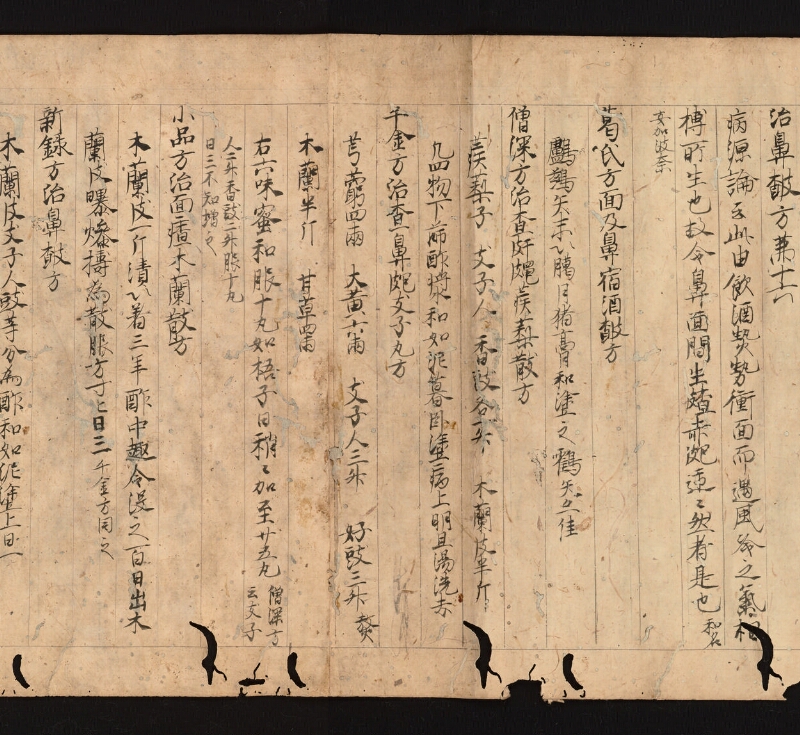 治鼻皶方第十六
病源論云此由飲酒熱勢衝面而遇風冷之氣相
搏所生也故令鼻面間生皶赤皰迊々然者是也 和名
安加波奈
葛氏方面及鼻宿酒皶方
鸕鷀矢末以臈月猪膏和塗之 鶴矢亦佳
僧深方治査皯皰蒺梨散方
蒺梨子 支子人 香豉各一升 木蘭皮半斤
凡四物下篩酢漿和如泥暮臥塗病上明旦湯洗去
千金方治査鼻皰支子丸方
芎藭四兩 大黄六兩 支子人三升 好豉三升熬
木蘭半斤 甘草四兩
右六味蜜和服十丸如梧子日稍々加至廿五丸 僧深方云支子
人二升香豉二升服十丸
日三不知增之
小品方治面皶木蘭散方
木蘭皮一斤漬以着三年酢中趣令没之百日出木
蘭皮曝燥擣為散服方寸匕日三 千金方同之
新録方治鼻皶方
木蘭皮支子人豉等分為酢和如泥塗上日一